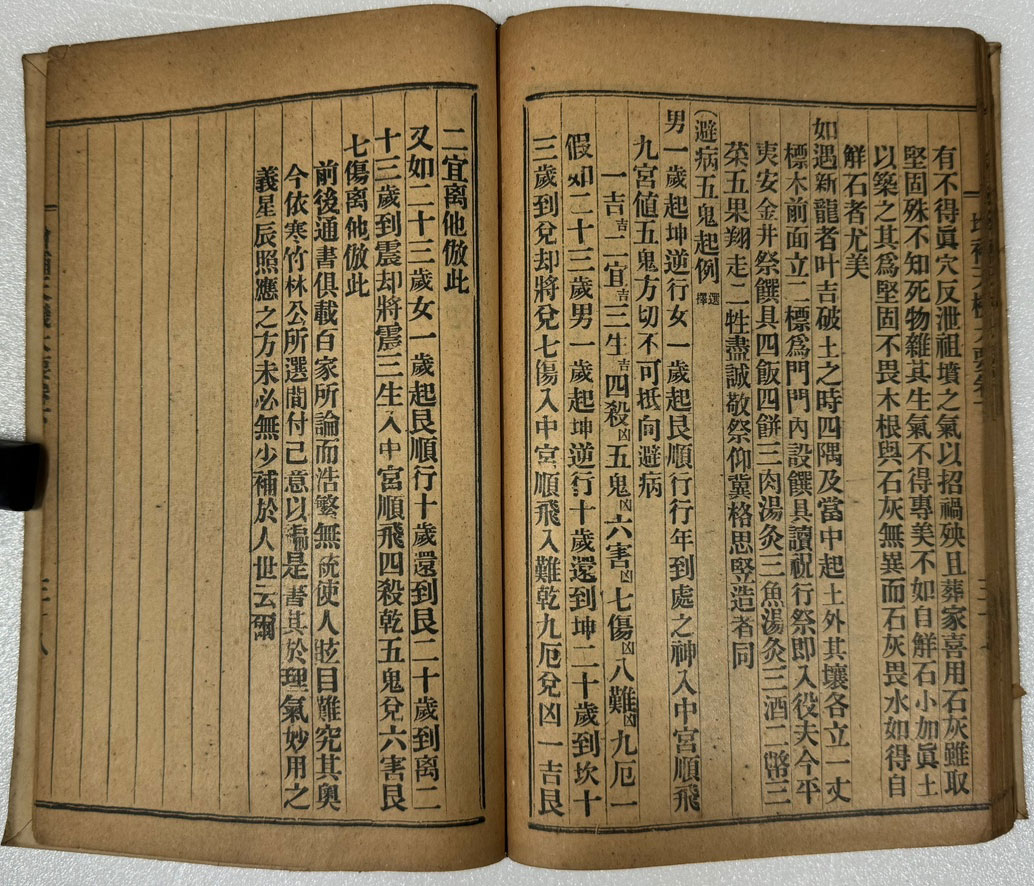 有不得眞穴反泄祖墳之氣以招禍殃且葬家喜用石灰雖取
堅固殊不知死物雜其生氣不得專美不如自鮮石小加眞土
以築之其爲堅固不畏木根與石灰無異而石灰畏水如得自
鮮石者尤美
如遇新龍者叶吉破土之時四隅及當中起土外其壤各立一丈
標木前面立二標爲門門內設饌具讀祝行祭即入役夫今平
夷安金井祭饌具四飯四餅三肉湯灸三魚湯灸三酒二幣三
菜五果翔走二牲盡誠敬祭仰冀格思竪造者同
(避病五鬼起例 選擇
男一歲起坤逆行女一歲起艮順行行年到處之神入中宮順飛
九宮値五鬼方切不可抵向避病
一吉吉二宜吉三生吉四殺凶五鬼凶六害凶七傷凶八難凶九厄一
假如二十三歲男一歲起坤逆行十歲還到坤二十歲到坎十
三歲到兌却將兌七傷入中宮順飛入難乾九厄兌凶一吉艮
二宜离他倣此
又如二十三歲女一歲起艮順行十歲還到艮二十歲到离二
十三歲到震却將震三生入中宮順飛四殺乾五鬼兌六害艮
七傷离他倣此
前後通書俱載百家所論而浩繁無統使人眩目難究其奧
今依寒竹林公所選間付己意以編是書其於理氣妙用之
義星辰照應之方未必無少補於人世云爾